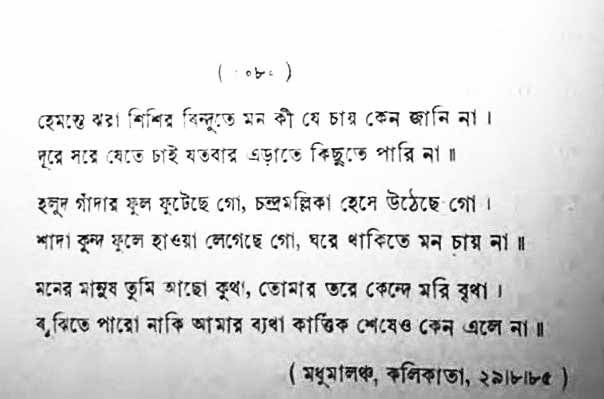 হেমন্তে ঝরা শিশির বিন্দুতে মন কী যে চায় কেন জানি না ।
দূরে সরে যেতে চাই যতবার এড়াতে কিছুতে পারি না ॥
হলুদ গাঁদার ফুল ফুটেছে গো, চন্দ্রমল্লিকা হেসে উঠেছে গো ।
শাদা কুন্দ ফুলে হাওয়া লেগেছে গো, ঘরে থাকিতে মন চায় না ॥
মনের মানুষ তুমি আছো কুথা, তোমার তরে কেন্দে মরি বৃথা ।
বুঝিতে পারো নাকি আমার ব্যথা কার্ত্তিক শেষেও কেন এলে না ॥
( মধুমালঞ্চ, কলিকাতা, ২৯।৮।৮৫ )